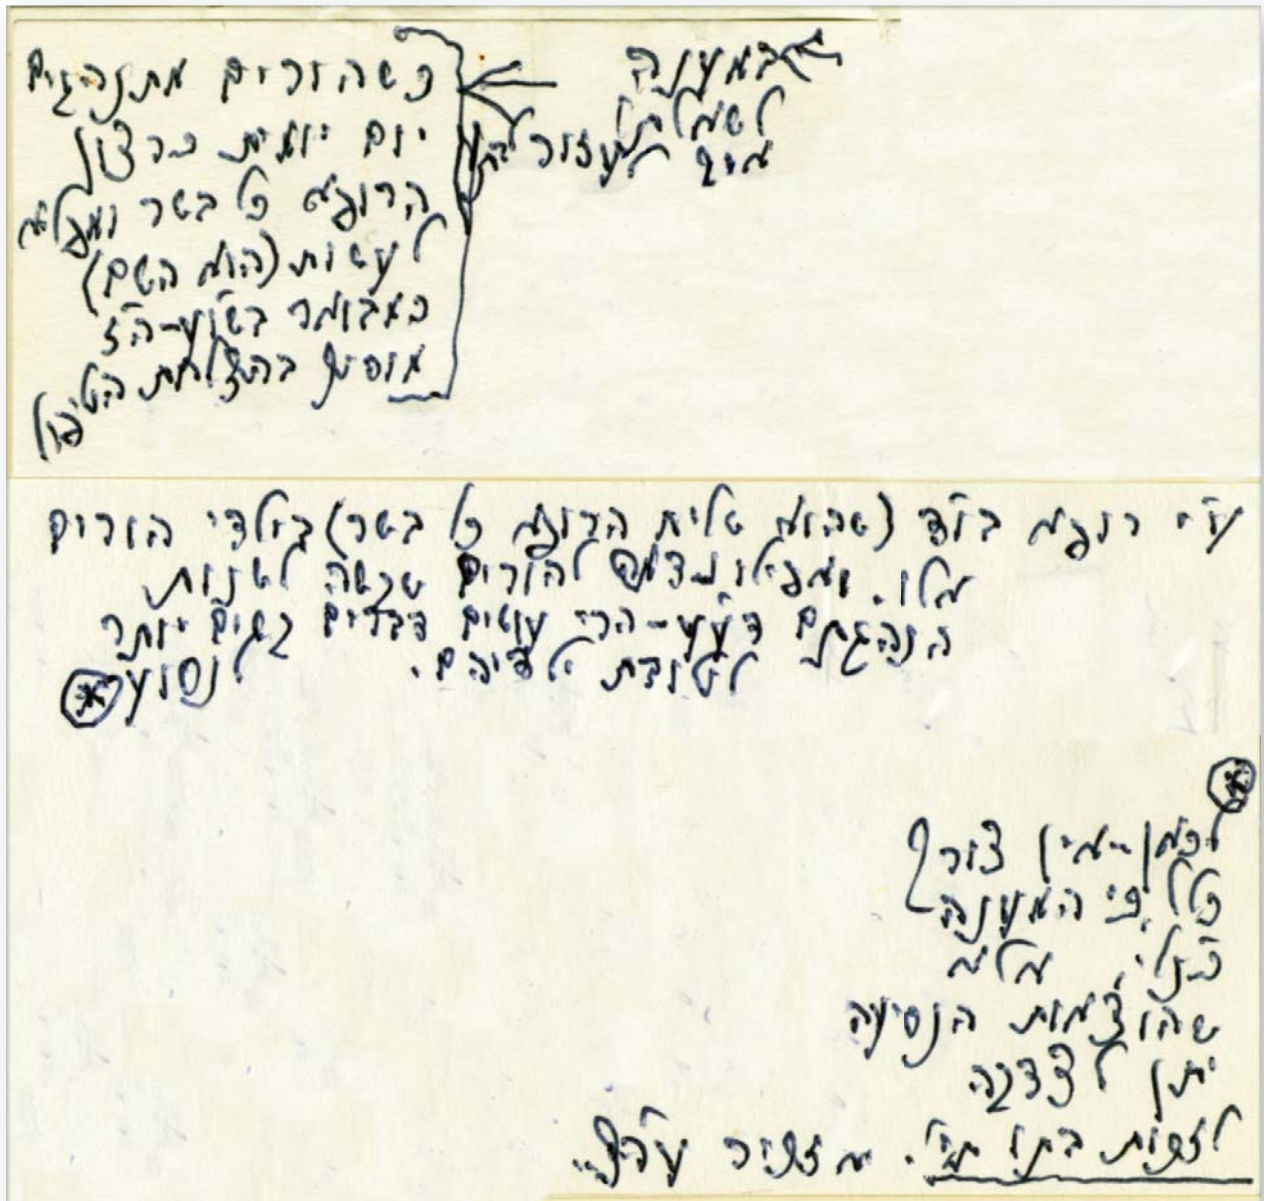 במענה
לשאלתו
איך לעזור לבתו
כשהורים מתנהגים
יום יומית כרצון
הרופא כל בשר ומפליא
לעשות (הוא השם)
כמבואר בשו"ע-ה"ז
מוסיף בהצלחת הטיפול
ע"י רופא בו"ד (שהוא שליח הרופא כל בשר) בילדי הורים
אלו. ואפילו נדמה להורים שקשה לשנות
הנהגתם דעש"ע-הרי עושים דברים קשים יותר
לטובת ילדיהם. לנסוע
לכאן-אין צורך
כלל, כי המענה
כנ"ל, אלא
שהוצאות הנסיעה
יתן לצדקה
לזכות בתו תחי'. אזכיר עה"צ.